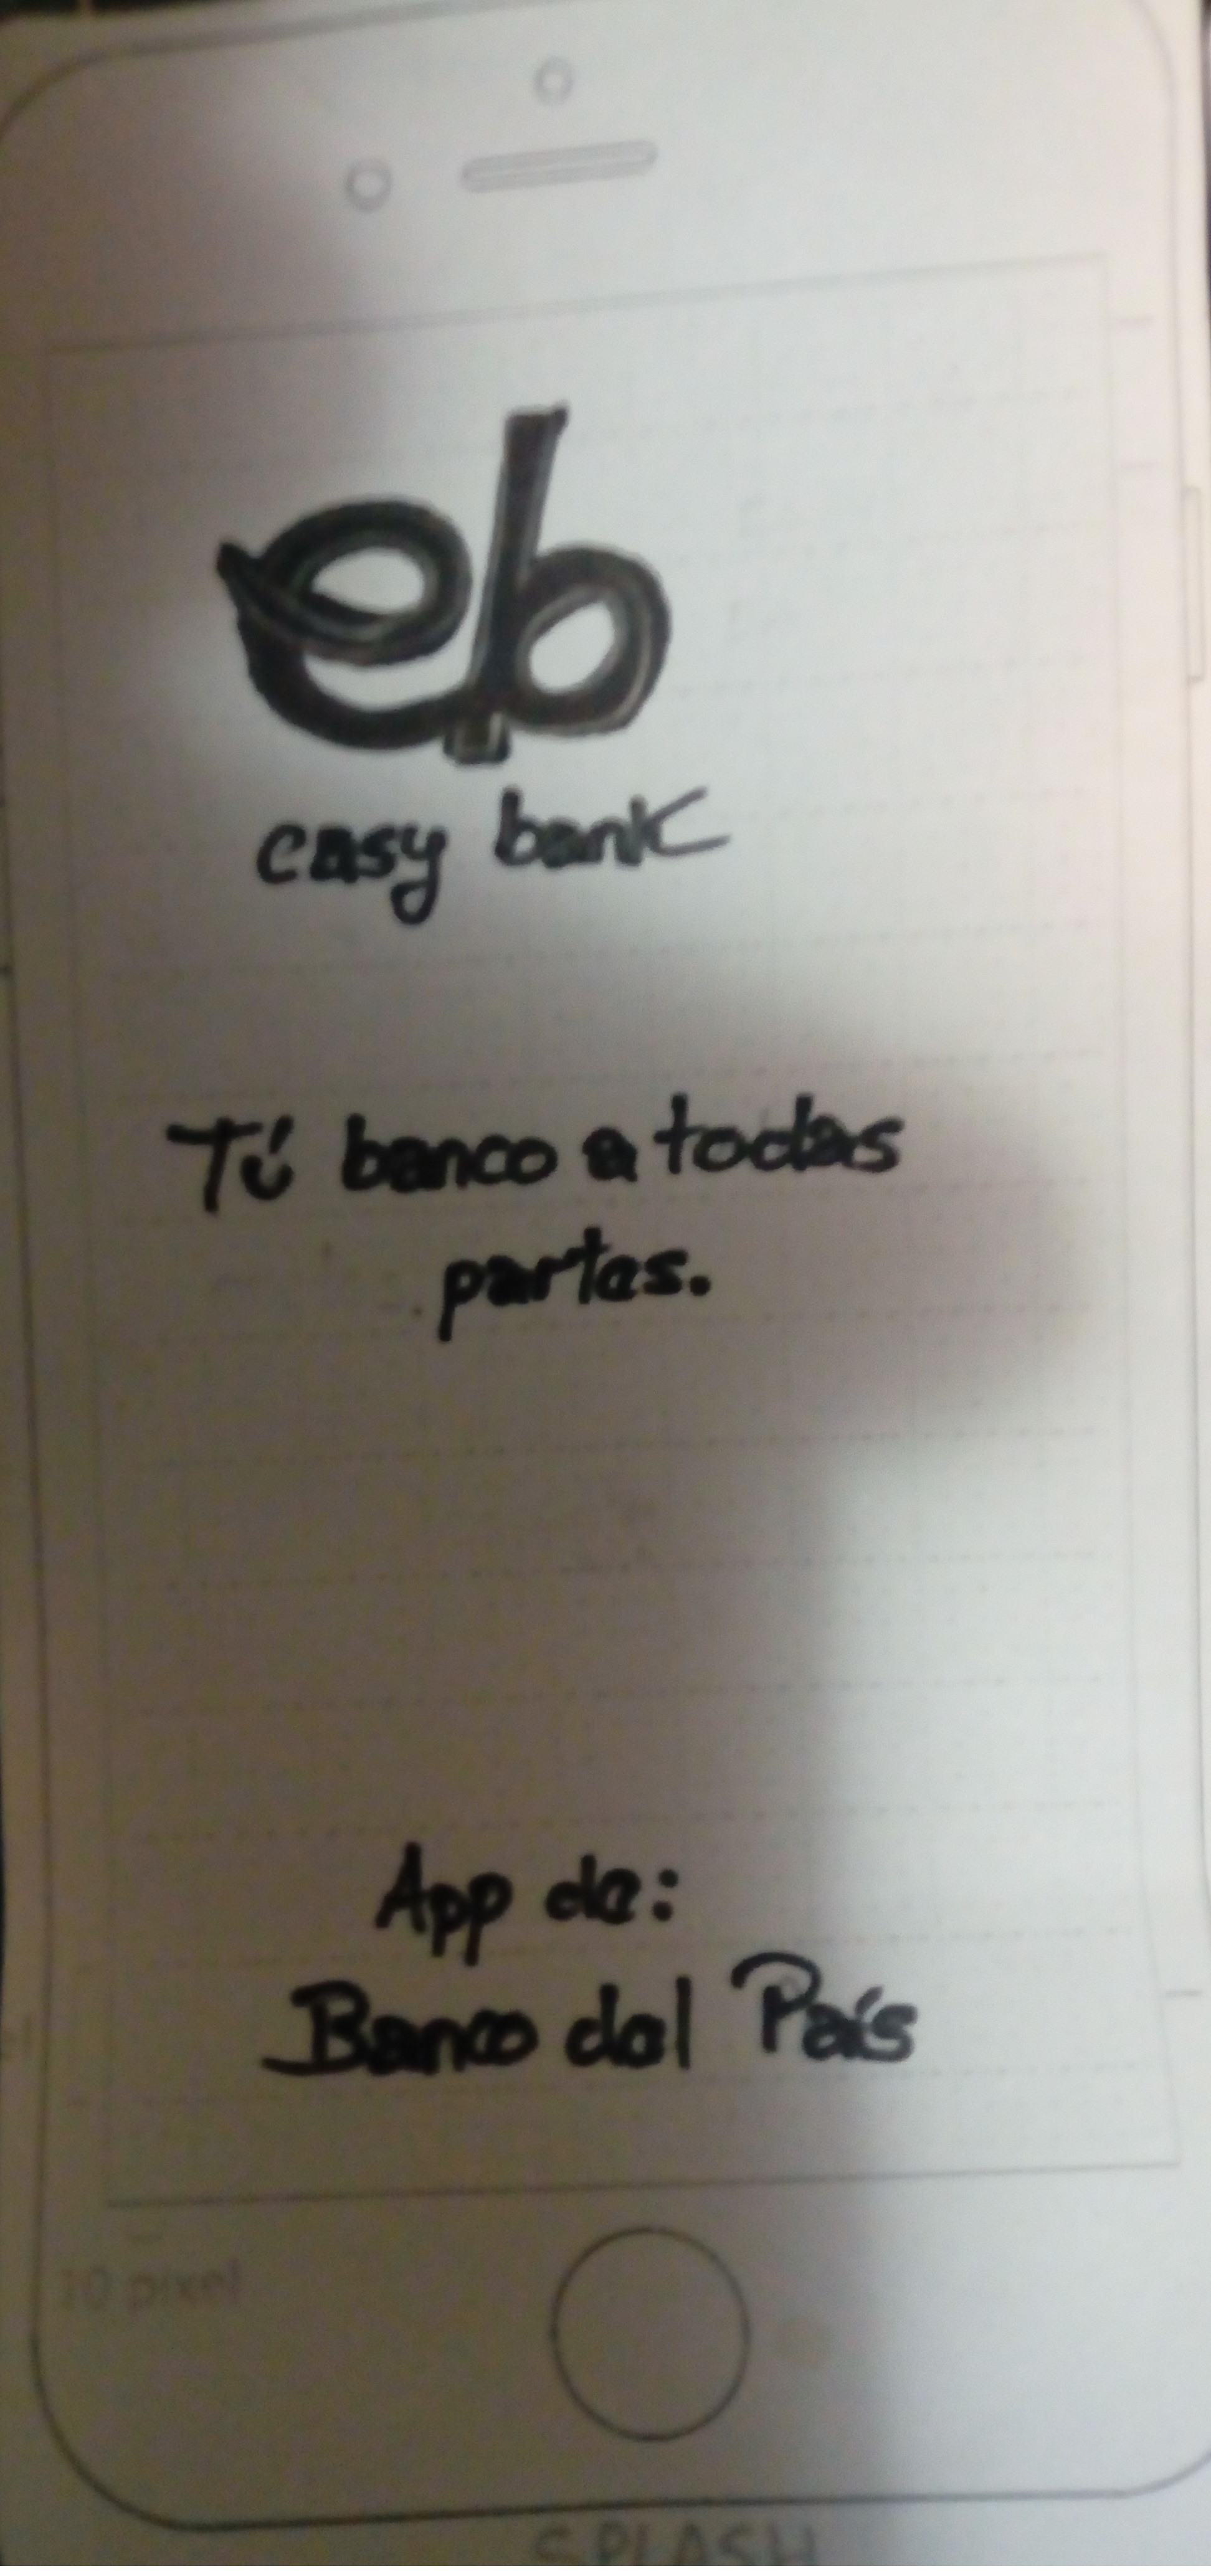 eb
easy bank
Tú banco a todas
partes.
App de:
Banco del País
10 pixel
SPLASH